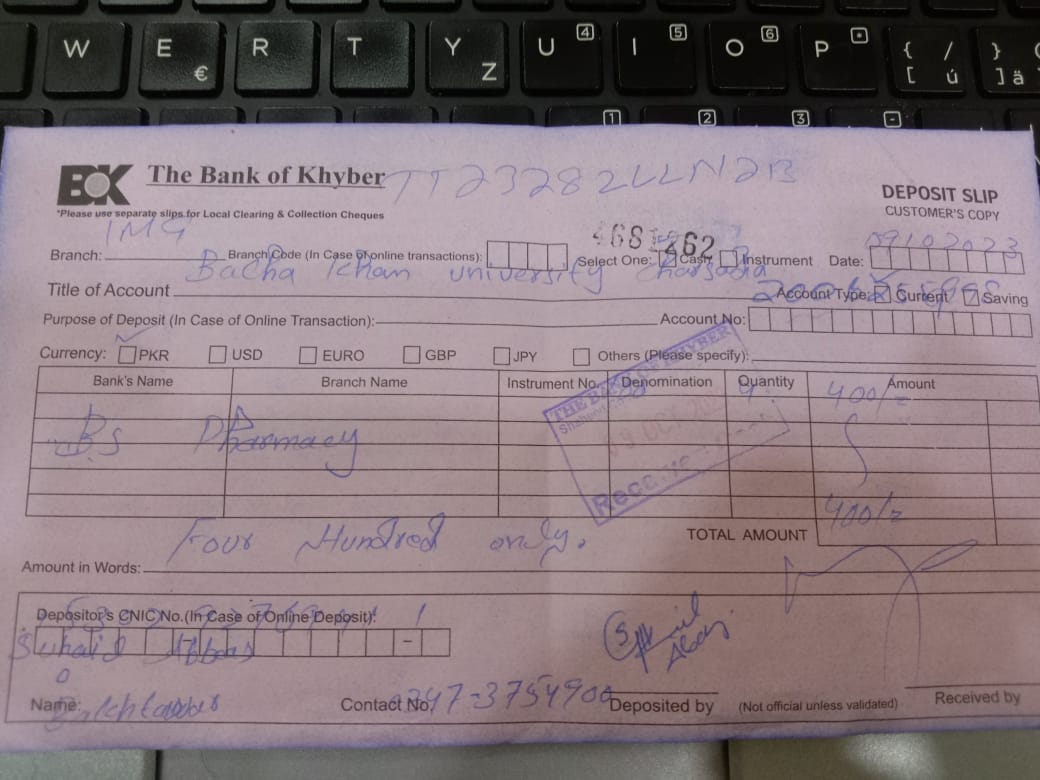 W E R T Y U 4 I 5 O 6 P * { /
€ Z [ ú } ] ä
1 2 3 -
BK The Bank of Khyber TT23282LLN2B
DEPOSIT SLIP
CUSTOMER'S COPY
*Please use separate slips for Local Clearing & Collection Cheques
Branch: Branch Code (In Case of online transactions): Select One: Cash Instrument Date: 09102023
Bacha Khan University Charsadda
Title of Account Account Type: Current Saving
Purpose of Deposit (In Case of Online Transaction): Account No:
Currency: PKR USD EURO GBP JPY Others (Please specify):
Bank's Name Branch Name Instrument No. Denomination Quantity Amount
4 400/=
BS Pharmacy
THE BANK OF KHYBER
09 OCT
400/=
TOTAL AMOUNT
Four Hundred only.
Amount in Words:
Depositor's CNIC No.(In Case of Online Deposit):
Suhail Abbas
Name: Contact No. 0347-3754900 Deposited by (Not official unless validated) Received by